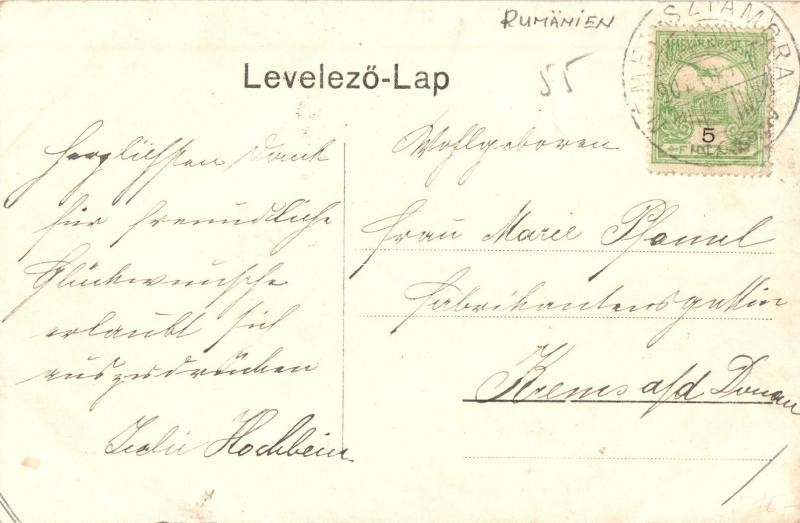 RUMÄNIEN
55
Levelező-Lap
MAGYAR KIR. POSTA
5
FILLÉR
Herzlichsten Dank
für freundliche
Glückwunsche
erlaubt sich
auszudrücken
Hochbein
Wohlgeboren
Frau Marie
Fabrikantensgattin
Krems a/d Donau